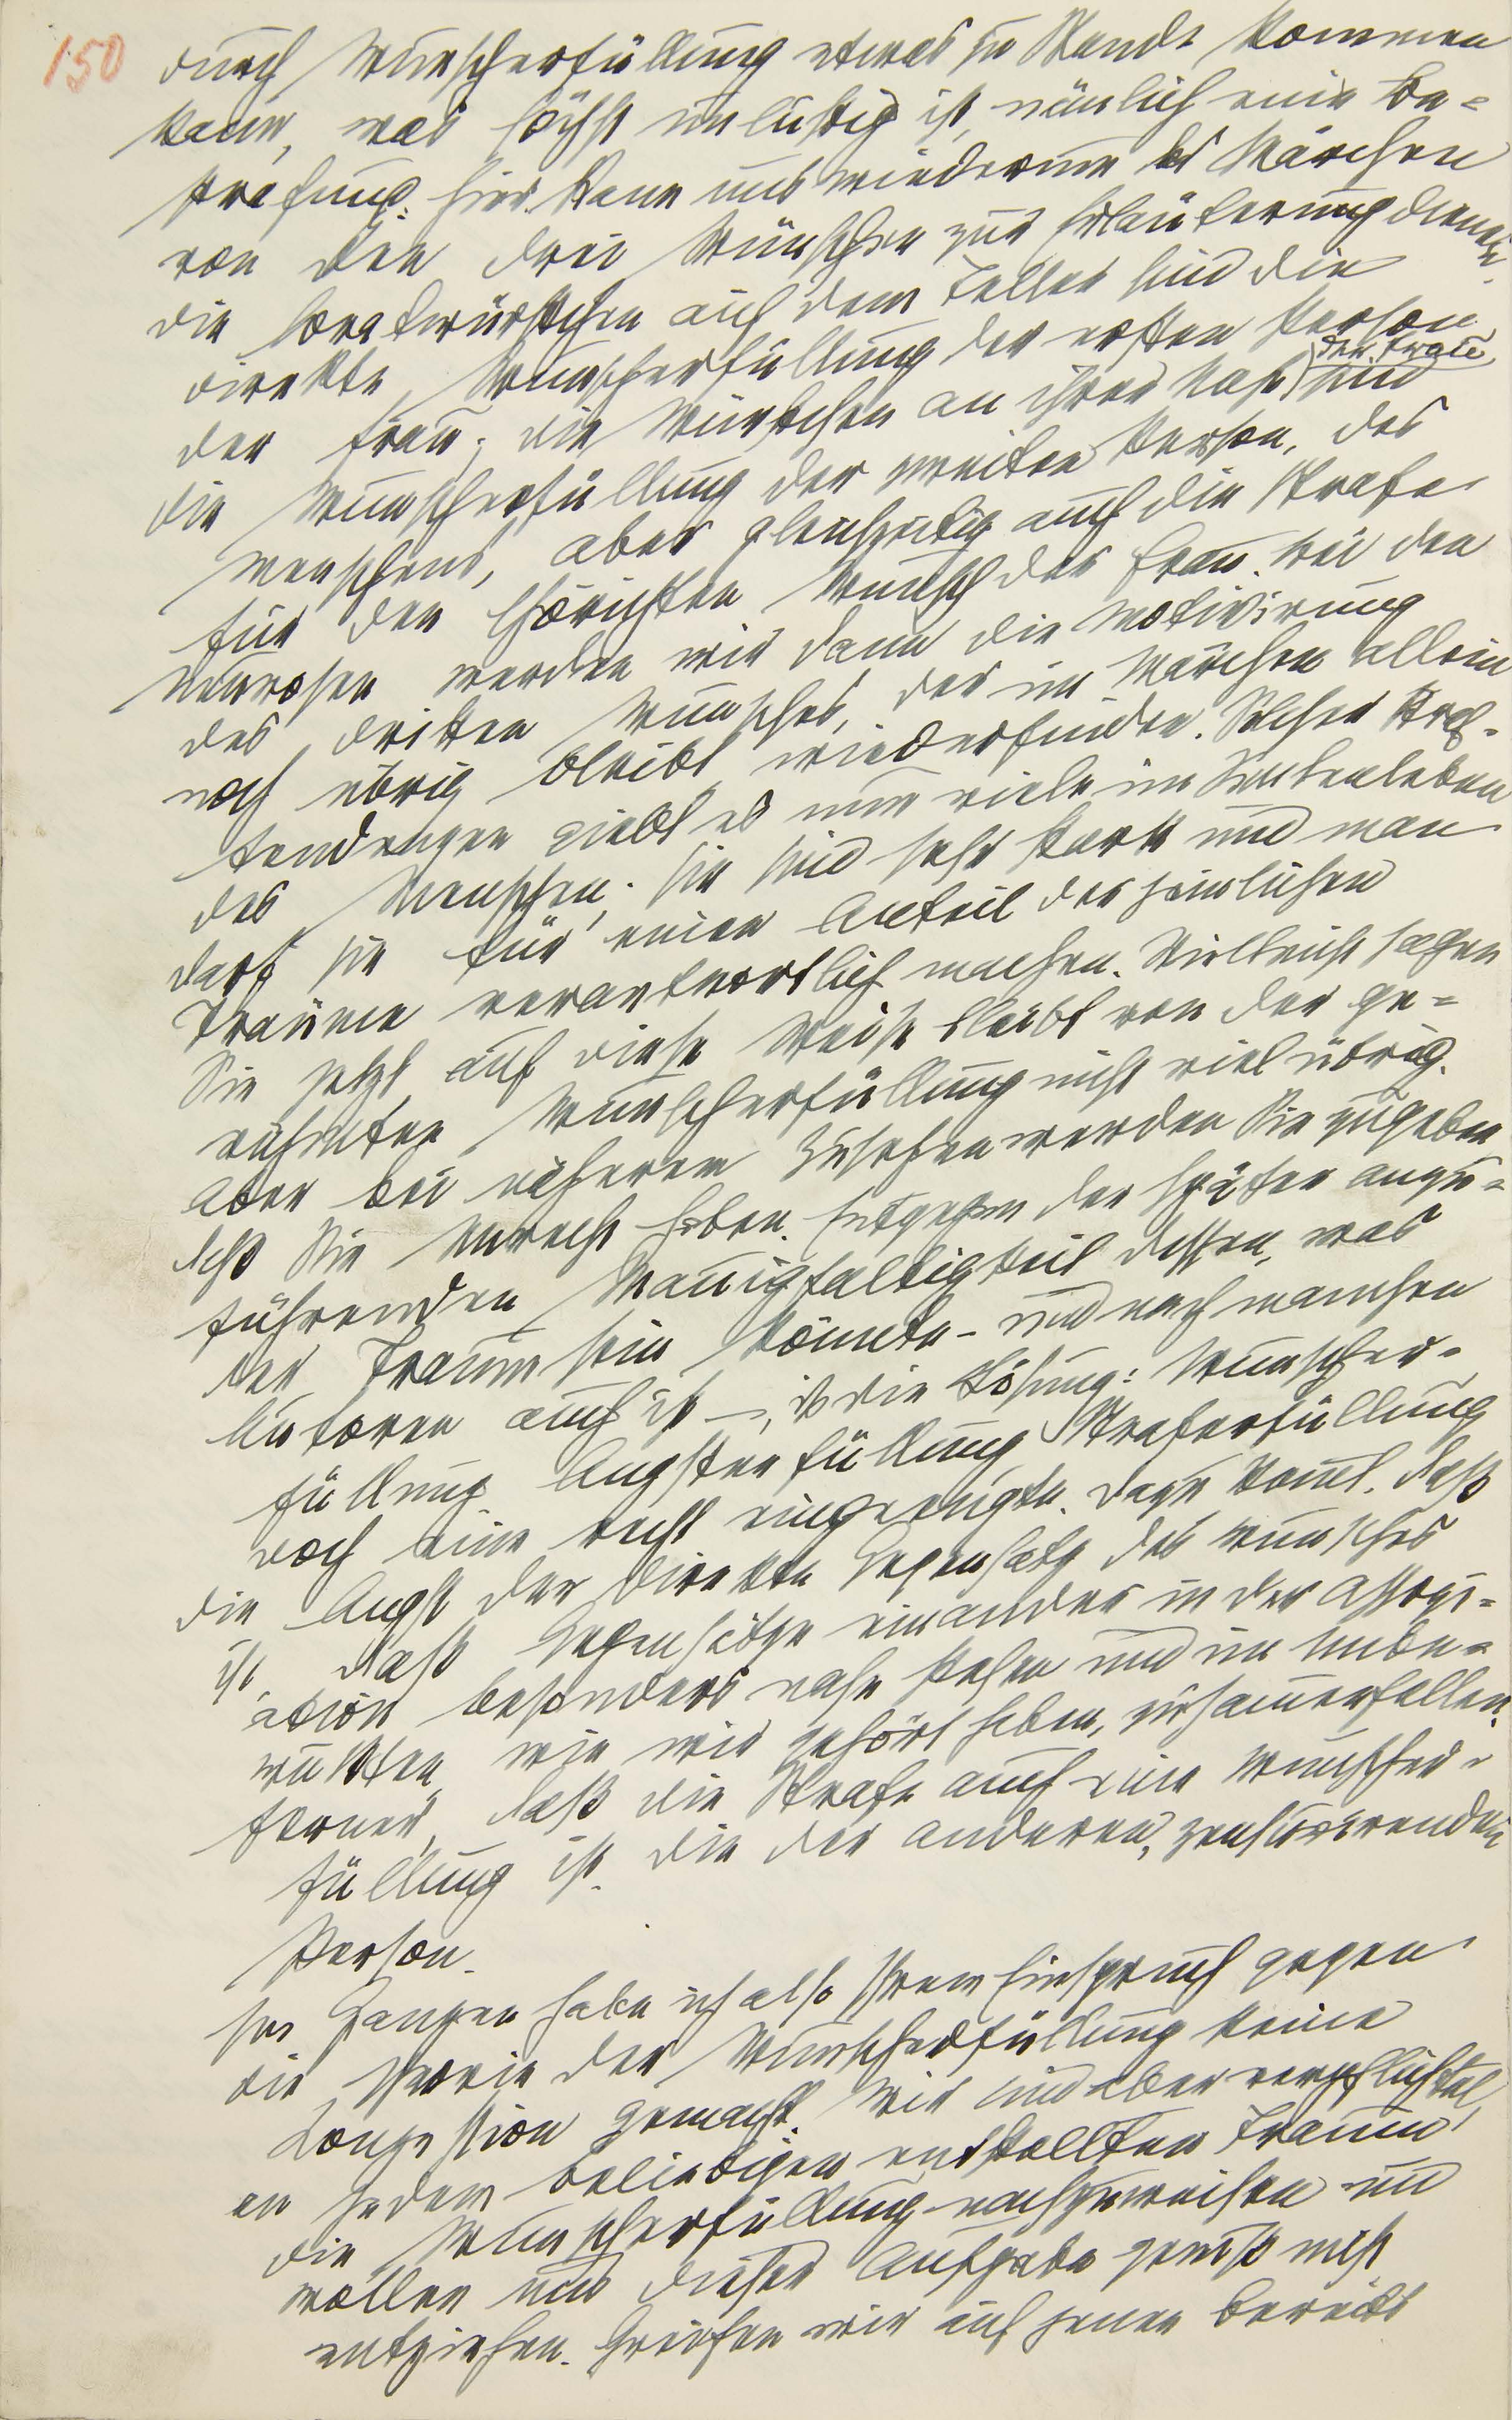 150
durch Wunscherfüllung etwas zu Stande kommen
kann, was höchst unlustig ist, nämlich eine Be=
strafung. Hier kann uns wiederum das Märchen
von den drei Wünschen zur Erläuterung dienen.
die Bratwürstchen auf dem Teller sind die
direkte Wunscherfüllung der ersten Person,
der Frau; die Würstchen an ihrer Nase sind
der Frau
die Wunscherfüllung der zweiten Person, des
Menschens, aber gleichzeitig auch die Strafe
für den thörichten Wunsch der Frau. Bei den
Neurosen werden wir dann die Motivirung
des dritten Wunsches, der im Märchen allein
noch übrig bleibt, wiederfinden. Solcher Straf-
tendenzen giebt es nun viele im Seelenleben
des Menschen; sie sind sehr stark und man
darf sie für einen Anteil der peinlichen
Träume verantwortlich machen. Vielleicht sagen
Sie jetzt, auf diese Weise bleibt von der ge=
rühmten Wunscherfüllung nicht viel übrig.
Aber bei näherem Zusehen werden Sie zugeben
daß Sie Unrecht haben. Entgegen der später anzu=
führenden Mannigfaltigkeit dessen, was
der Traum sein könnte – und nach manchen
Autoren auch ist –, ist die Lösung: Wunscher-
füllung, Angsterfüllung, Straferfüllung
doch eine recht eingeengte. Dazu kommt, daß
die Angst der direkte Gegensatz des Wunsches
ist, daß Gegensätze einander in der Associ=
ation besonders nahe stehen und im Unbe=
wußten, wie wir gehört haben, zusammenfallen.
Ferner, daß die Strafe auch eine Wunscher-
füllung ist, die der anderen, zensurirenden
Person.
Im Ganzen habe ich also Ihrem Einspruch gegen
die Theorie der Wunscherfüllung keine
Konzession gemacht. Wir sind aber verpflichtet,
an jedem beliebigen entstellten Traum
die Wunscherfüllung nachzuweisen und
wollen uns dieser Aufgabe gewiß nicht
entziehen. Greifen wir auf jenen bereits